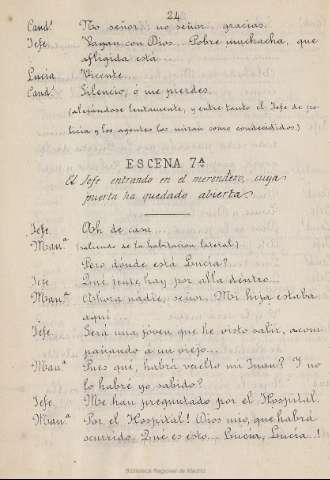 24.
Cand.º No señor, no señor, gracias.
Jefe. Vayan con Dios. Pobre muchacha, que
afligida está...
Lucía Vicente...
Cand.º Silencio, ó me pierdes.
(alejándose lentamente, y entre tanto el Jefe de po-
licía y los agentes los miran como condendidos.)
ESCENA 7ª
El Jefe entrando en el merendero, cuya
puerta ha quedado abierta
Jefe. Ah de casa...
Man.ª (saliendo de la habitación lateral)
Pero dónde está Lucía?
Jefe Que gente hay por allá dentro...
Man.ª Ahora nadie, señor. Mi hija estaba
aquí...
Jefe. Será una jóven que he visto salir, acom-
pañando a un viejo...
Man.ª Pues que, habrá vuelto mi Juan? Y no
lo habré yo sabido?
Jefe. Me han preguntado por el Hospital.
Man.ª Por el Hospital! Dios mio, que habrá
ocurrido. Que es esto... Lucía, Lucía..!
Biblioteca Regional de Madrid